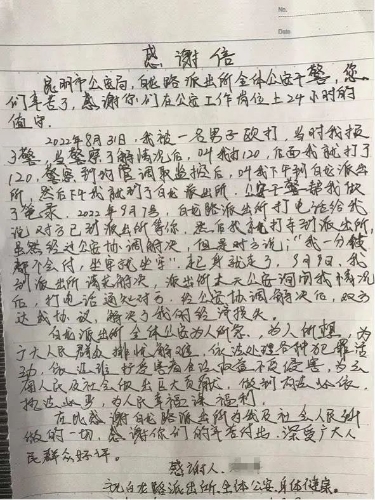 No.
Date
感谢信
昆明市公安局,白龙路派出所全体公安干警,您
们辛苦了,感谢你们在公安工作岗位上24小时的
值守。
2022年8月31日,我被一名男子殴打,当时我报
了警,当警察了解情况后,叫我打120,后面我就打了
120,警察到物管调取监控后,叫我下午到白龙派出
所,然后下午我就到了白龙派出所,公安干警帮我做
了笔录,2022年9月7日,白龙路派出所打电话给我
说,对方已到派出所等你,然后我就打车到派出所,
虽然经过公安协调解决,但是对方说:"我一分钱
都不会付,坐牢就坐牢"起身就走了,9月9日,我
到派出所请求解决,派出所公安询问我情况
后,打电话通知对方,经公安协调解决后,双方
达成协议,解决了我的经济损失。
白龙派出所全体公安为人所急,为人所想,为
广大人民群众排忧解难,依法处理各种犯罪活
动,保证群众财产收益不受侵害,为全
国人民及社会做出巨大贡献,做到有法必依,
执法必严,为人民幸福谋福利
在此感谢白龙路派出所为我及社会人民所
做的一切,感谢你们的辛苦付出,深受广大人
民群众好评。
感谢人:
祝白龙路派出所全体公安,身体健康。